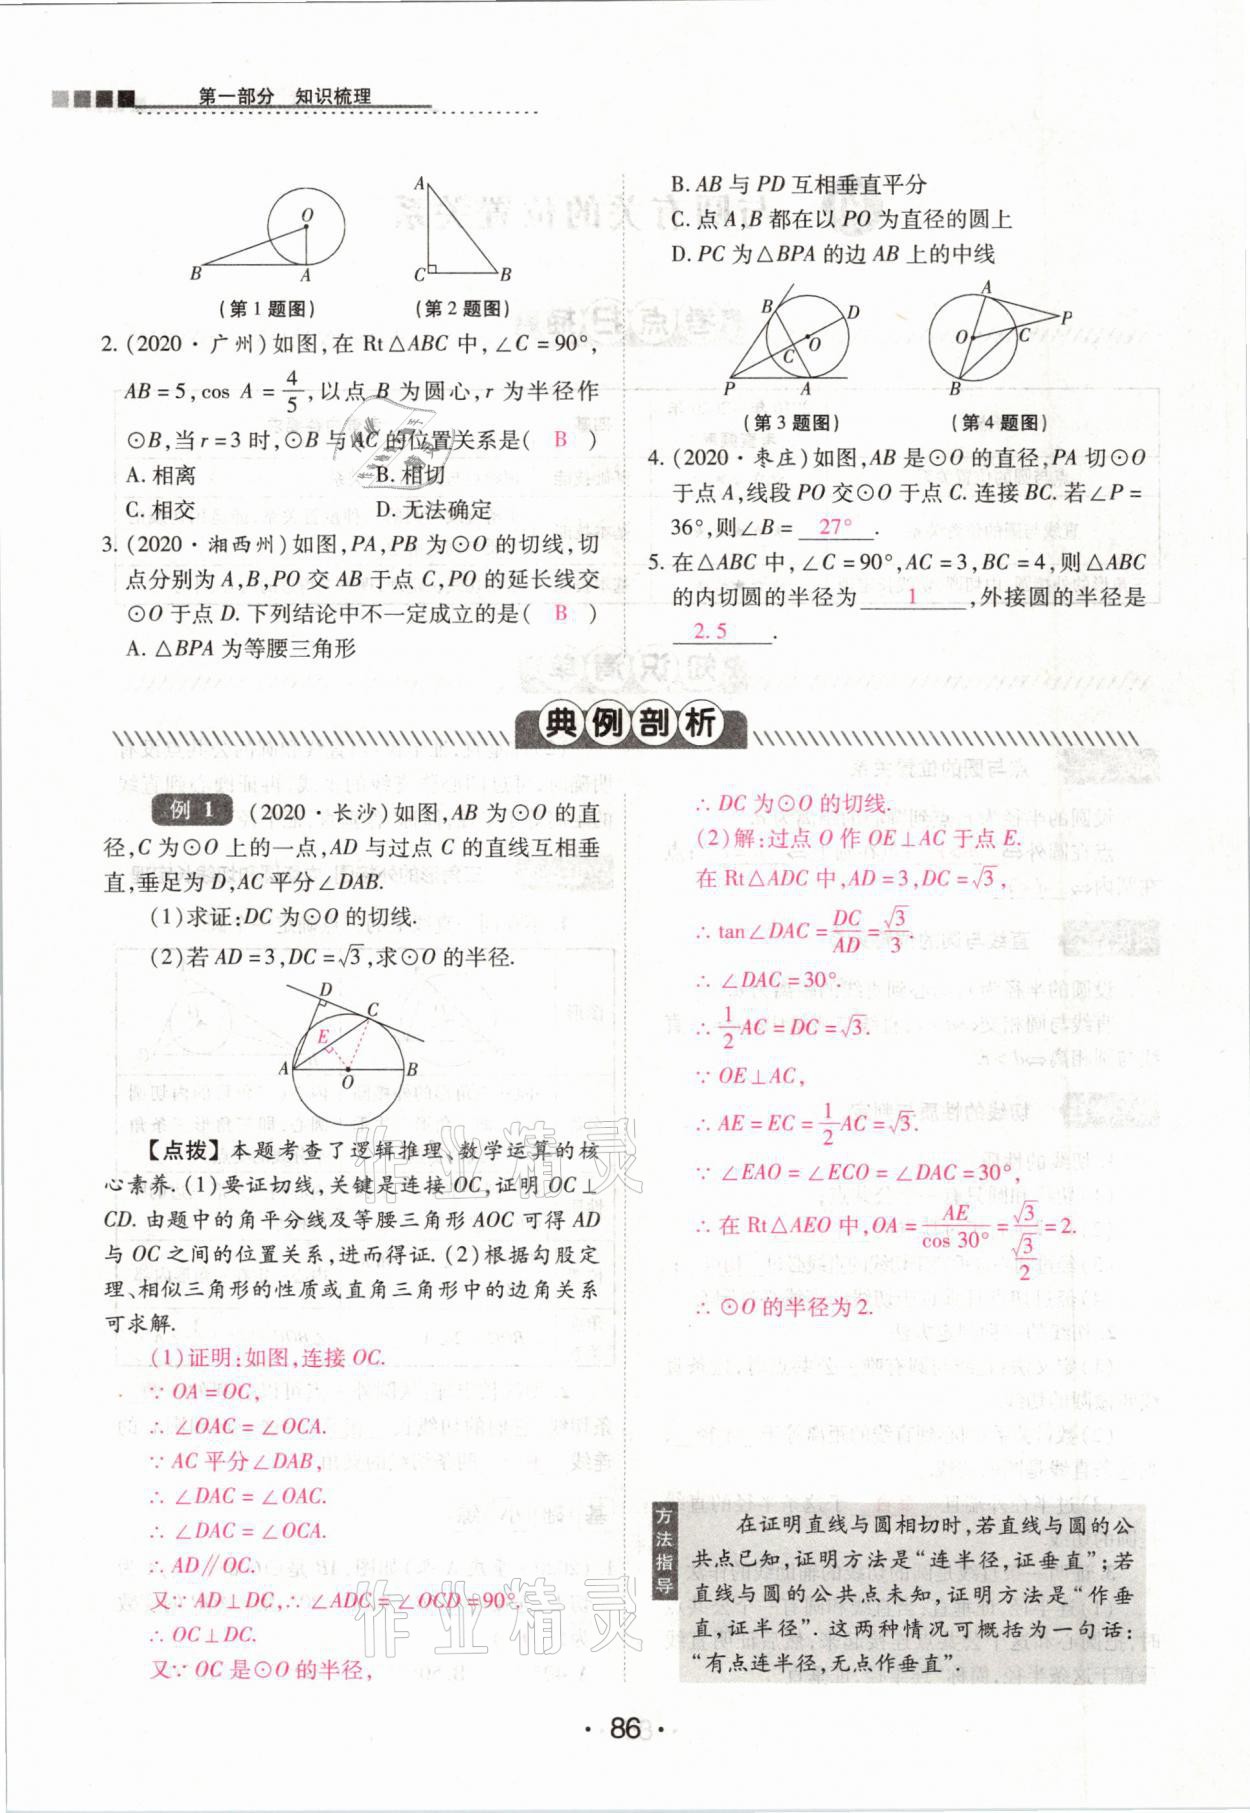 第一部分 知识梳理
O
B
A
(第1题图)
A
C
B
(第2题图)
2. (2020·广州)如图,在 Rt△ABC 中,∠C=90°,
AB=5,cos A=4/5,以点 B 为圆心,r 为半径作
⊙B,当 r=3 时,⊙B 与 AC 的位置关系是( B )
A. 相离 B. 相切
C. 相交 D. 无法确定
3. (2020·湘西州)如图,PA,PB 为⊙O 的切线,切
点分别为 A,B,PO 交 AB 于点 C,PO 的延长线交
⊙O 于点 D. 下列结论中不一定成立的是( B )
A. △BPA 为等腰三角形
B. AB 与 PD 互相垂直平分
C. 点 A,B 都在以 PO 为直径的圆上
D. PC 为△BPA 的边 AB 上的中线
B
D
O
C
P
A
(第3题图)
A
P
O
C
B
(第4题图)
4. (2020·枣庄)如图,AB 是⊙O 的直径,PA 切⊙O
于点 A,线段 PO 交⊙O 于点 C. 连接 BC. 若∠P=
36°,则∠B= 27° .
5. 在△ABC 中,∠C=90°,AC=3,BC=4,则△ABC
的内切圆的半径为 1 ,外接圆的半径是
2.5 .
典例剖析
例 1 (2020·长沙)如图,AB 为⊙O 的直
径,C 为⊙O 上的一点,AD 与过点 C 的直线互相垂
直,垂足为 D,AC 平分∠DAB.
(1)求证:DC 为⊙O 的切线.
(2)若 AD=3,DC=√3,求⊙O 的半径.
D
C
E
A
O
B
【点拨】本题考查了逻辑推理、数学运算的核
心素养. (1)要证切线,关键是连接 OC,证明 OC⊥
CD. 由题中的角平分线及等腰三角形 AOC 可得 AD
与 OC 之间的位置关系,进而得证. (2)根据勾股定
理、相似三角形的性质或直角三角形中的边角关系
可求解.
(1)证明:如图,连接 OC.
∵ OA=OC,
∴ ∠OAC=∠OCA.
∵ AC 平分∠DAB,
∴ ∠DAC=∠OAC.
∴ ∠DAC=∠OCA.
∴ AD∥OC.
又∵ AD⊥DC,∴ ∠ADC=∠OCD=90°.
∴ OC⊥DC.
又∵ OC 是⊙O 的半径,
∴ DC 为⊙O 的切线.
(2)解:过点 O 作 OE⊥AC 于点 E.
在 Rt△ADC 中,AD=3,DC=√3,
∴ tan∠DAC=DC/AD=√3/3.
∴ ∠DAC=30°.
∴ 1/2 AC=DC=√3.
∵ OE⊥AC,
∴ AE=EC=1/2 AC=√3.
∵ ∠EAO=∠ECO=∠DAC=30°,
∴ 在 Rt△AEO 中,OA=AE/cos 30°=√3/(√3/2)=2.
∴ ⊙O 的半径为 2.
方法指导
在证明直线与圆相切时,若直线与圆的公
共点已知,证明方法是“连半径,证垂直”;若
直线与圆的公共点未知,证明方法是“作垂
直,证半径”. 这两种情况可概括为一句话:
“有点连半径,无点作垂直”.
作业精灵
作业精灵
· 86 ·